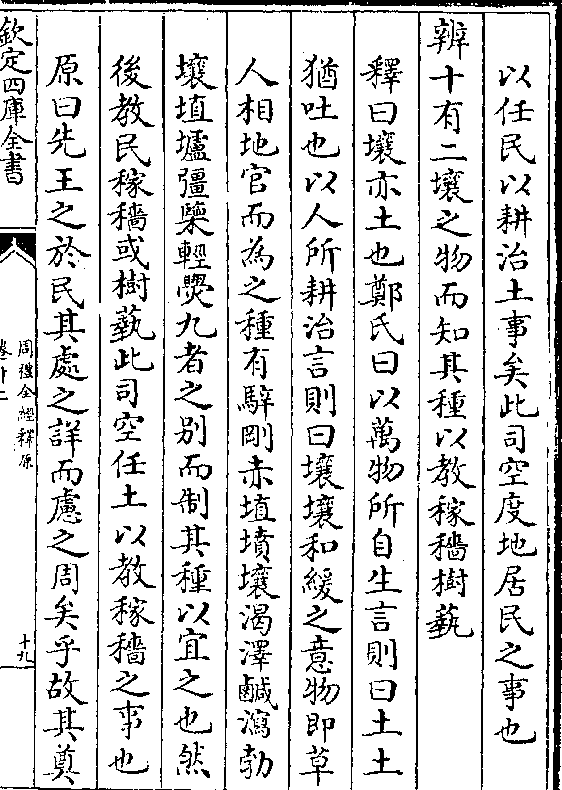 以任民以耕治土事矣此司空度地居民之事也
辨十有二壤之物而知其種以教稼穡樹蓺
釋曰壤亦土也鄭氏曰以萬物所自生言則曰土土
猶吐也以人所耕治言則曰壤壤和緩之意物即草
人相地官而為之種有騂剛赤埴墳壤渴澤鹹瀉勃
壤埴壚彊㯺輕㷼九者之別而制其種以宜之也然
後教民稼穡或樹蓺此司空任土以教稼穡之事也
原曰先王之於民其處之詳而慮之周矣乎故其奠
欽定四庫全書
周禮全經釋原
卷十二
十九